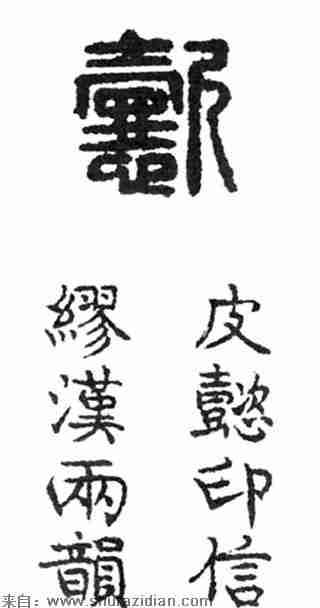 懿
皮懿印信
繆漢兩韻
来自：www.shufazidian.com